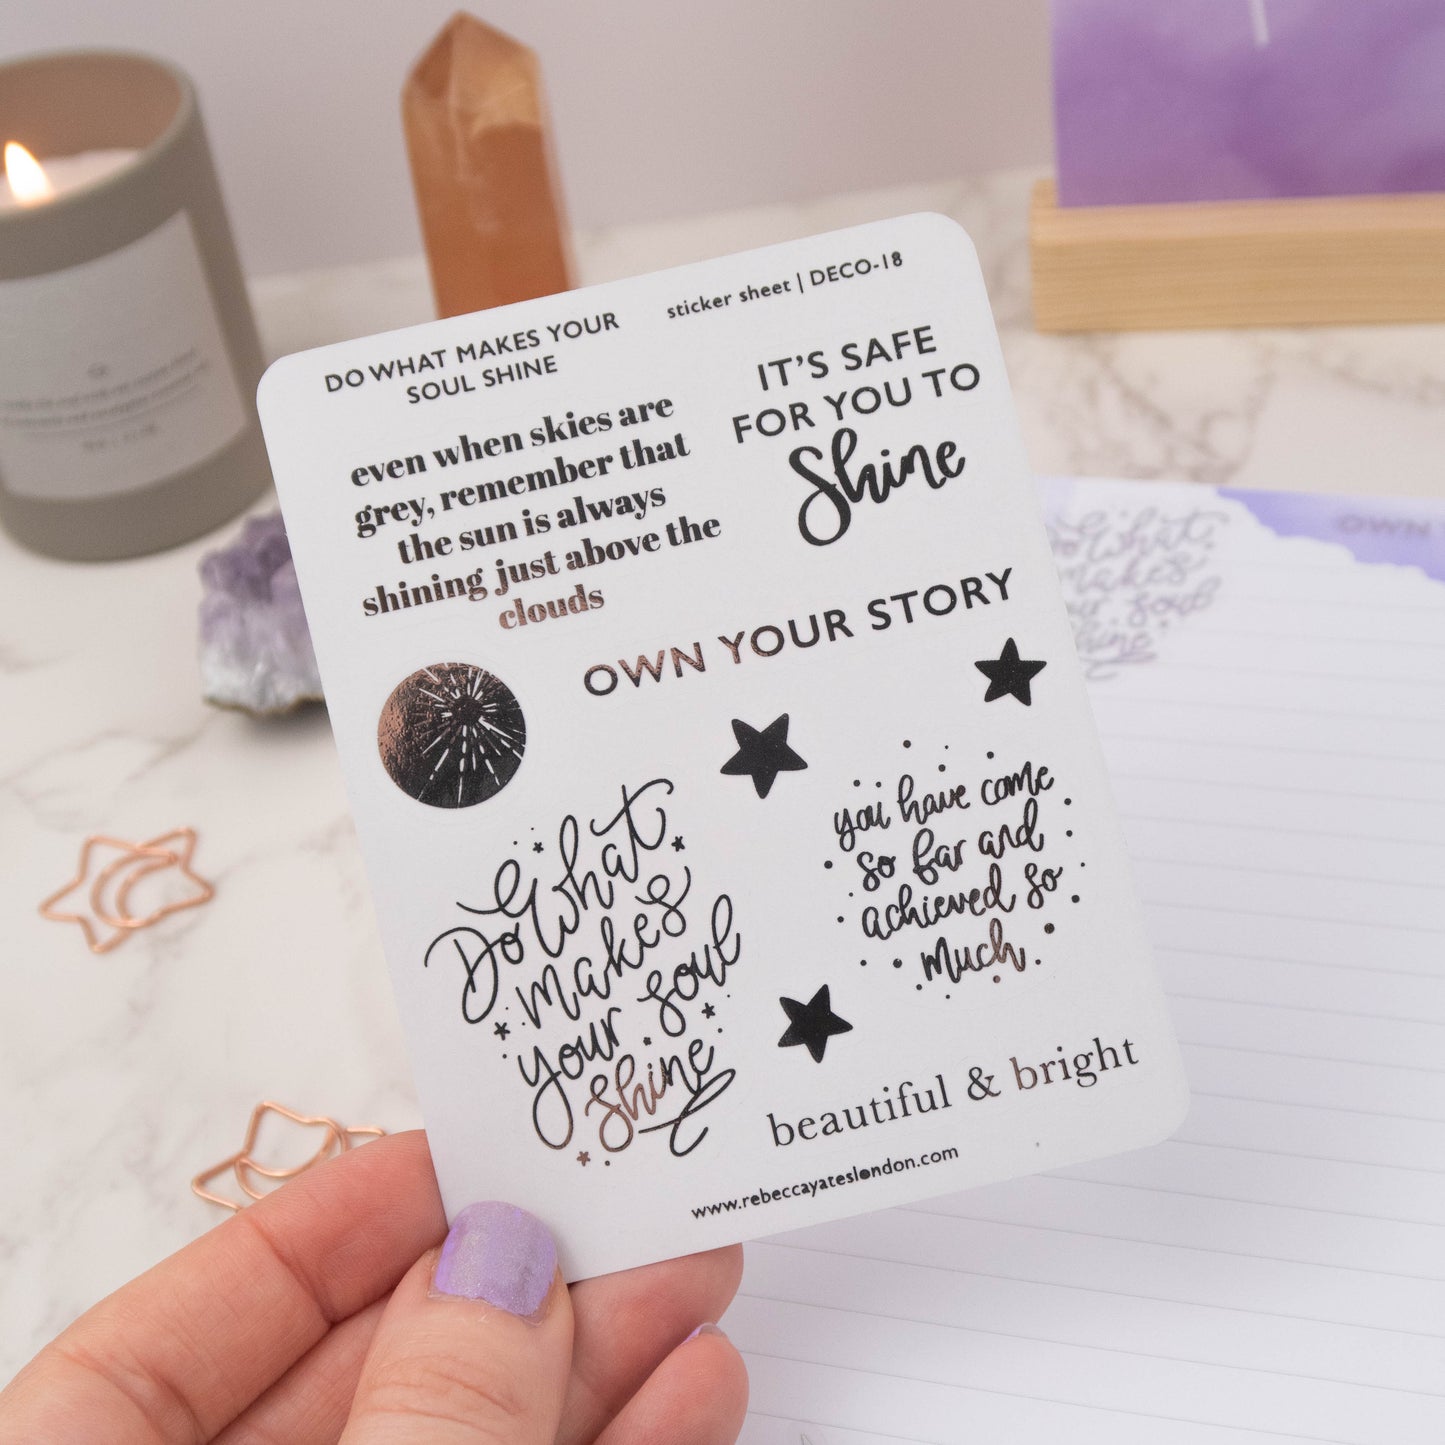 DO WHAT MAKES YOUR
SOUL SHINE
sticker sheet | DECO-18
even when skies are
grey, remember that
the sun is always
shining just above the
clouds
IT'S SAFE
FOR YOU TO
Shine
OWN YOUR STORY
Do What
makes
your soul
shine
you have come
so far and
achieved so
much.
beautiful & bright
www.rebeccayateslondon.com
OWN
Do What
makes
your soul
shine